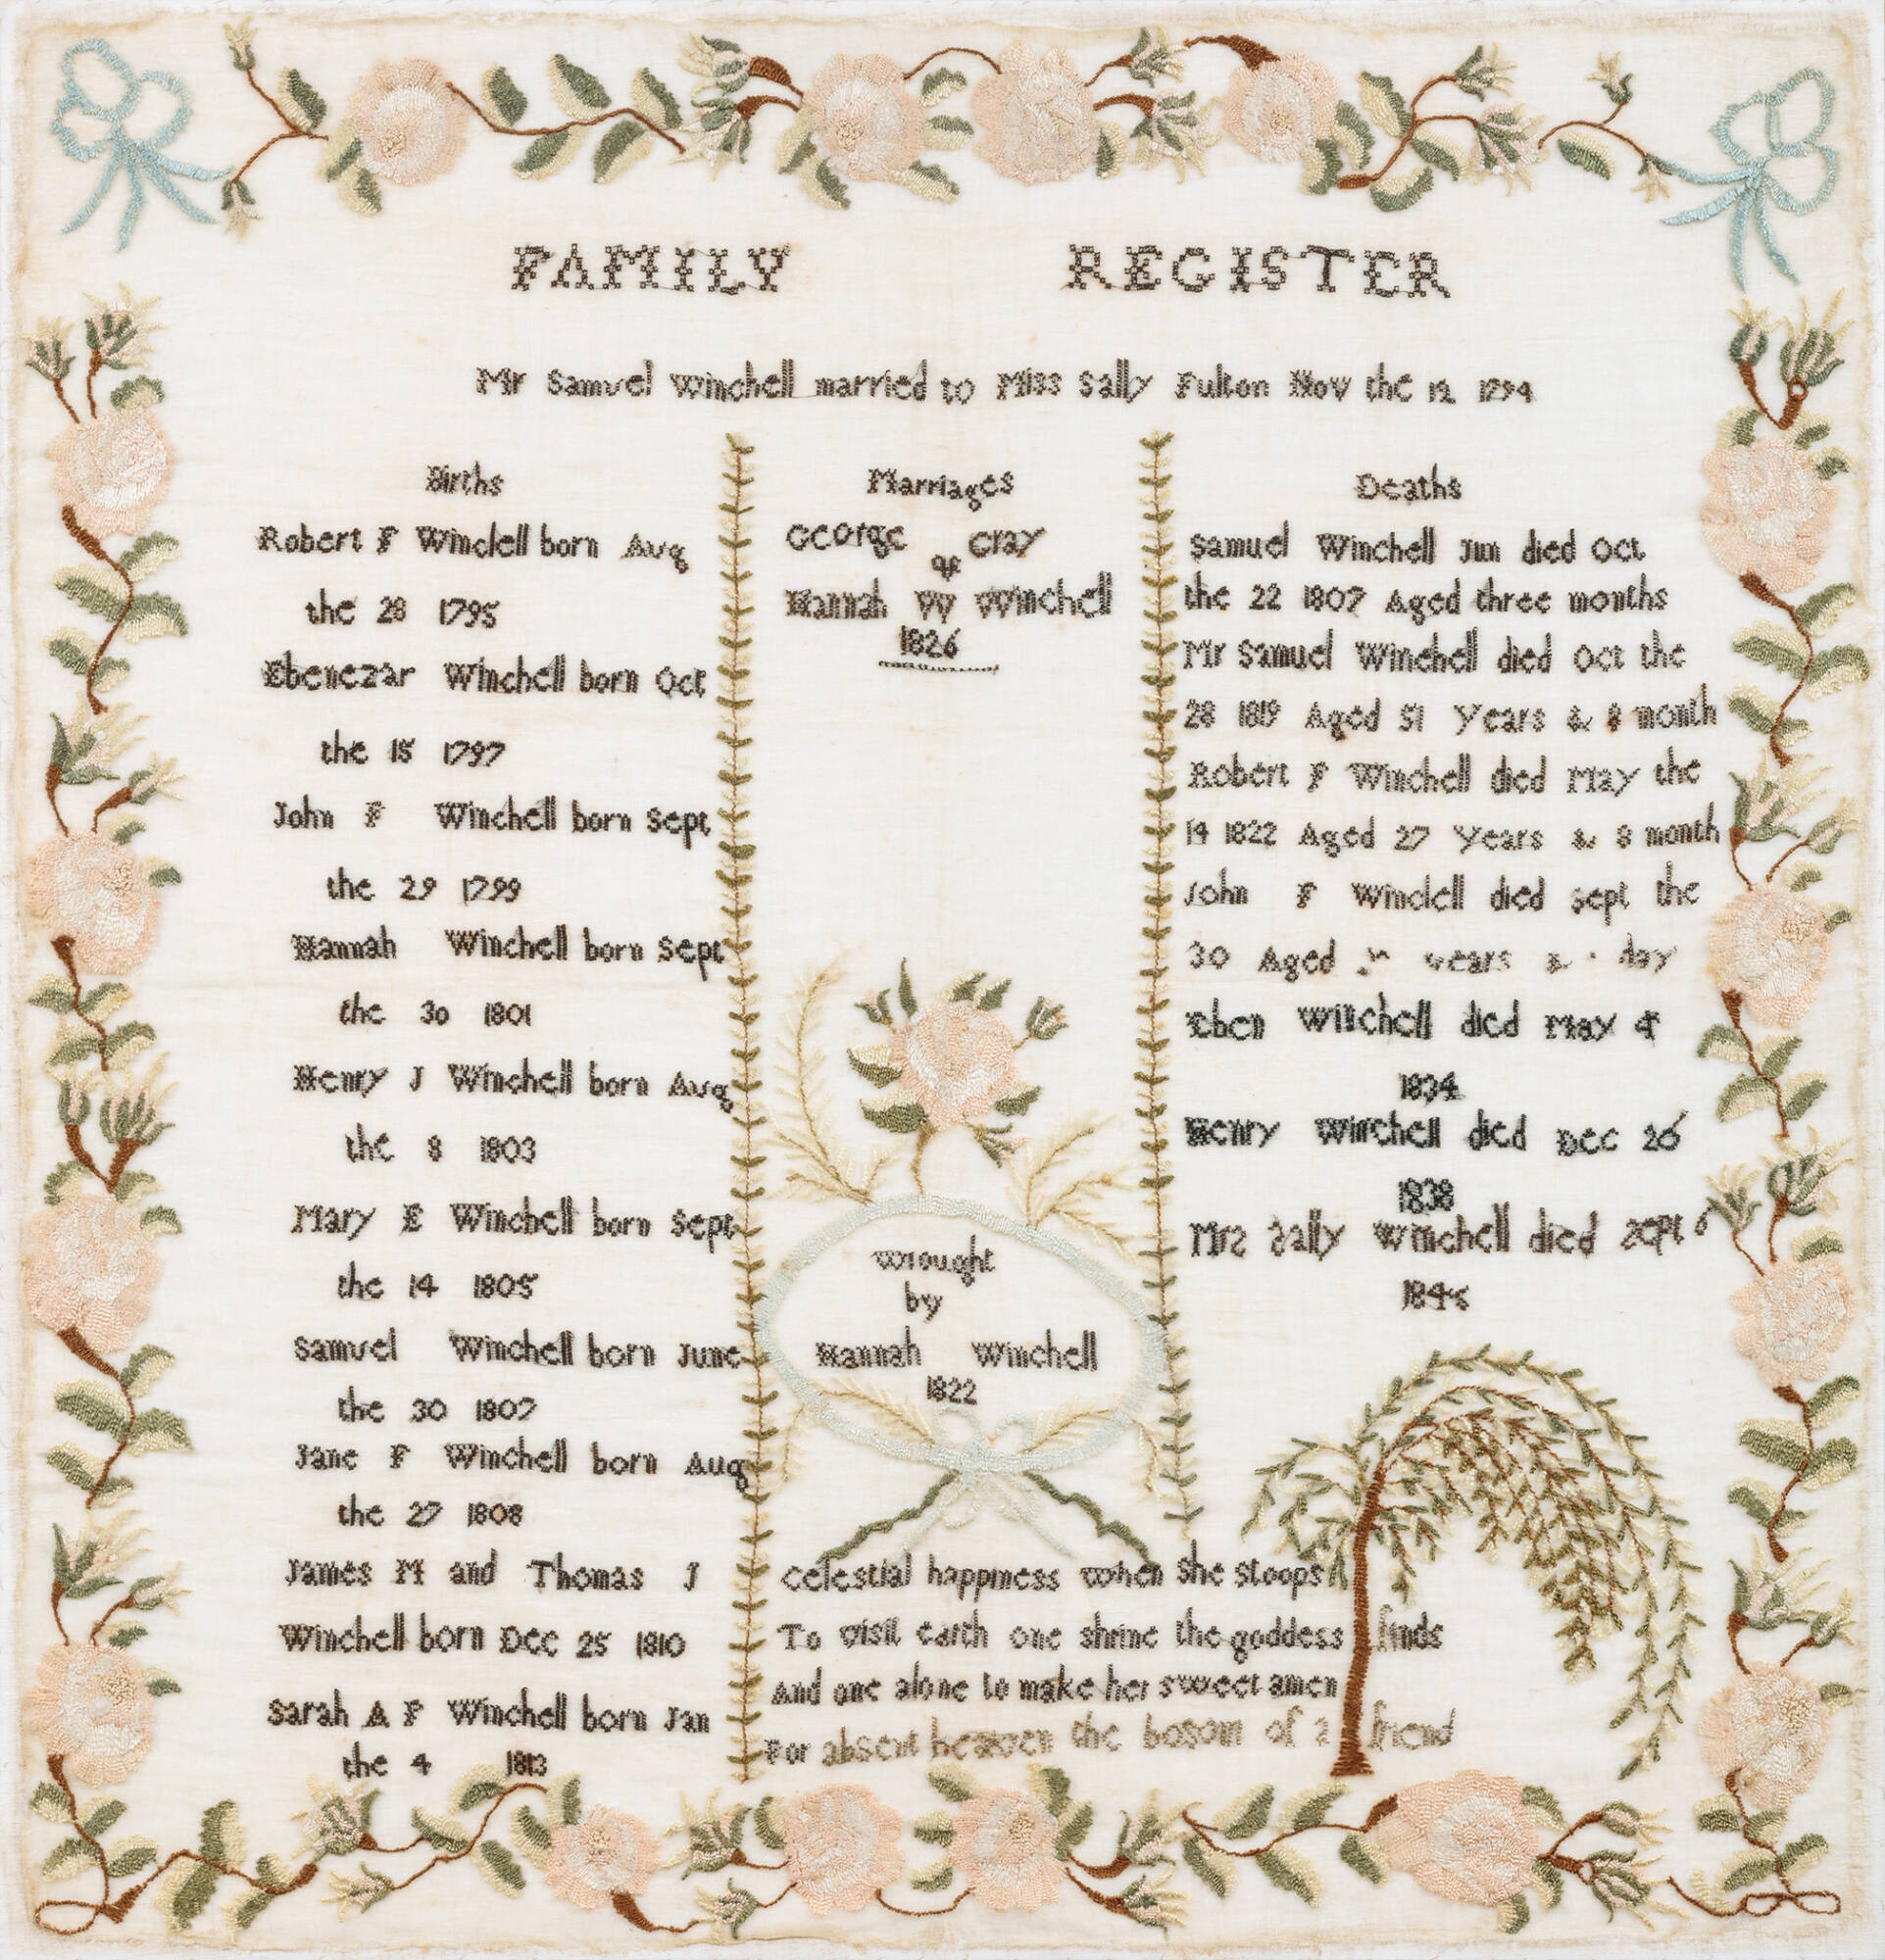 FAMILY REGISTER
Mr Samuel Winchell married to Miss Sally Fulton Nov the 12 1794
Births
Robert F Winclell born Aug
the 28 1795
Ebenezar Winchell born Oct
the 15 1797
John F Winchell born Sept
the 29 1799
Hannah Winchell born Sept
the 30 1801
Henry J Winchell born Aug
the 8 1803
Mary E Winchell born Sept
the 14 1805
Samuel Winchell born June
the 30 1807
Jane F Winchell born Aug
the 27 1808
James M and Thomas J
Winchell born Dec 25 1810
Sarah A F Winchell born Jan
the 4 1813
Marriages
George Gray
Hannah W Winchell
1826
Wrought
by
Hannah Winchell
1822
Deaths
Samuel Winchell Jun died Oct
the 22 1807 Aged three months
Mr Samuel Winchell died Oct the
28 1819 Aged 51 Years & 8 month
Robert F Winchell died May the
14 1822 Aged 27 Years & 8 month
John F Winclell died Sept the
30 Aged years & day
Eben Winchell died May 4
1834
Henry Winchell died Dec 26
1838
Mrs Sally Winchell died Sept 6
Celestial happiness when she stoops
To visit earth one shrine the goddess finds
And one alone to make her sweet amen
For absent heaven the bosom of a friend